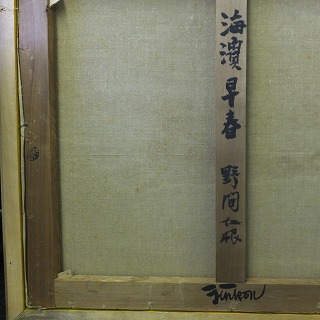 海濱早春 野間仁根